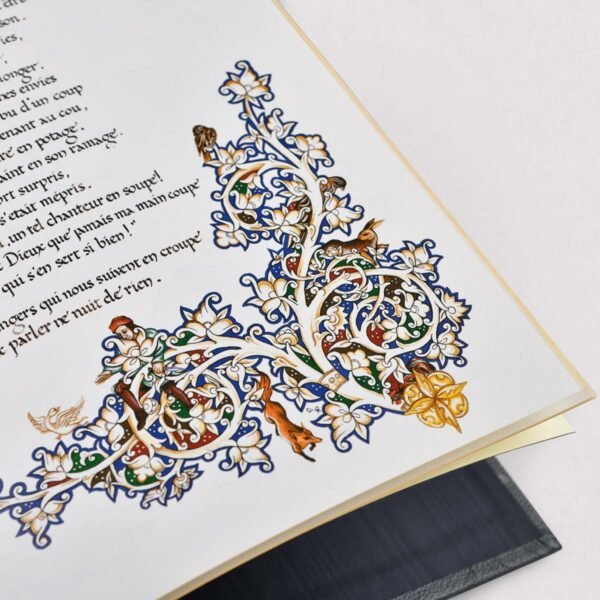 son.
ies,
longer.
nes envies
bu d'un coup
enant au cou,
re en potage.
aint en son ramage.
rt surpris,
s'était mépris.
un tel chanteur en soupe!
Dieux que jamais ma main coupe
qui s'en sert si bien!"
ngers qui nous suivent en croupe
parler ne nuit de rien.